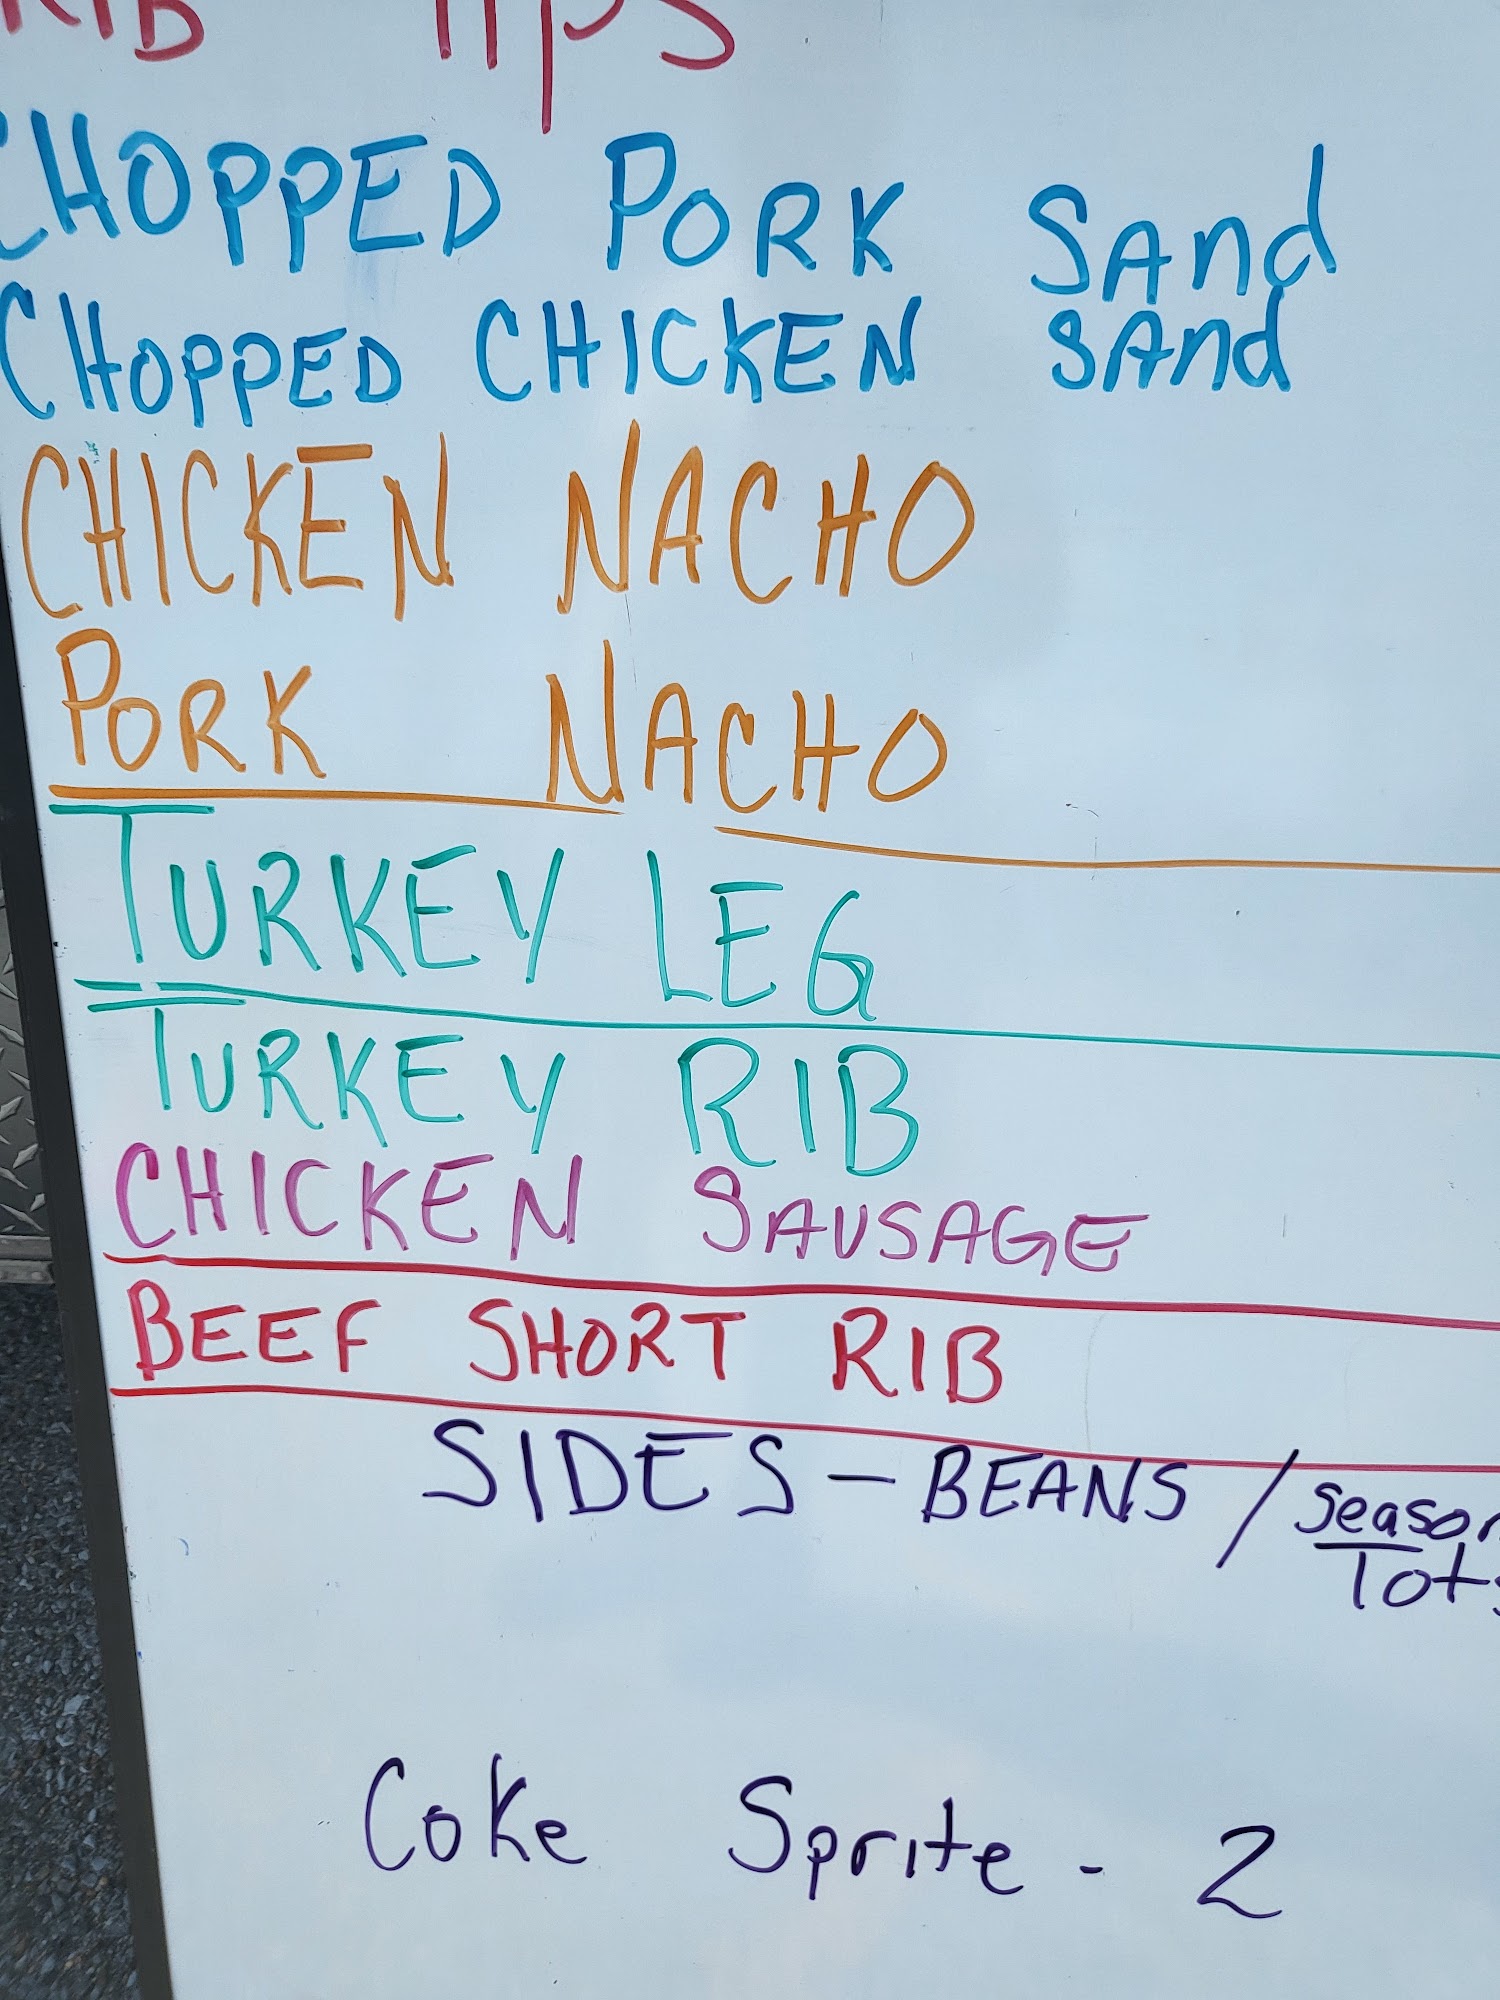 RIB TIPS
CHOPPED PORK SAnd
CHOPPED CHICKEN SAnd
CHICKEN NACHO
PORK NACHO
TURKEY LEG
TURKEY RIB
CHICKEN SAUSAGE
BEEF SHORT RIB
SIDES - BEANS / Season
Tots
Coke Sprite - 2